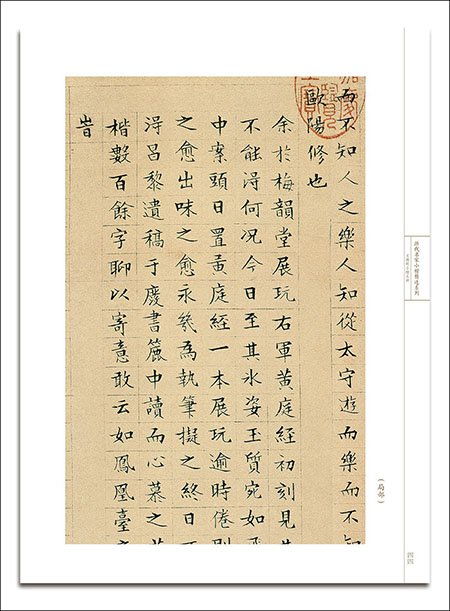 而不知人之樂人知從太守遊而樂而不知
歐陽修也
余於梅韻堂展玩右軍黃庭經初刻見
不能淂何況今日至其氷姿玉質宛如
中案頭日置黃庭經一本展玩逾時倦則
之愈出味之愈永幾為執筆擬之終日
淂昌黎遺稿于慶書簏中讀而心慕之
楷數百餘字聊以寄意敢云如鳳凰臺
旹
（局部）
四四